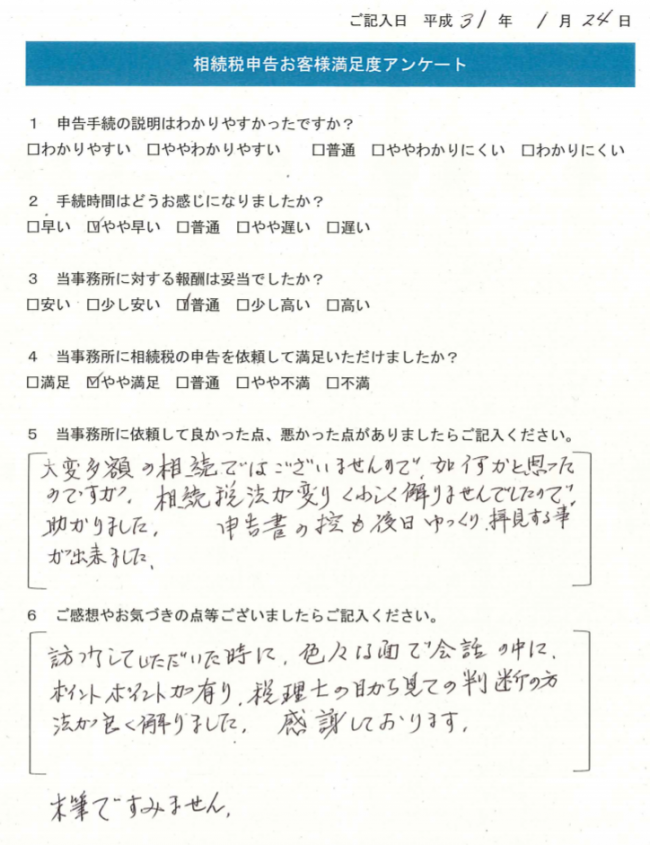 ご記入日 平成 31 年 1 月 24 日
相続税申告お客様満足度アンケート
1 申告手続の説明はわかりやすかったですか？
□わかりやすい □ややわかりやすい □普通 □ややわかりにくい □わかりにくい
2 手続時間はどうお感じになりましたか？
□早い ☑やや早い □普通 □やや遅い □遅い
3 当事務所に対する報酬は妥当でしたか？
□安い □少し安い ☑普通 □少し高い □高い
4 当事務所に相続税の申告を依頼して満足いただけましたか？
□満足 ☑やや満足 □普通 □やや不満 □不満
5 当事務所に依頼して良かった点、悪かった点がありましたらご記入ください。
大変多額の相続ではございませんので、如何かと思った
のですが、相続税法が変りくわしく解りませんでしたので、
助かりました。 申告書の控も後日ゆっくり、拝見する事
が出来ました。
6 ご感想やお気づきの点等ございましたらご記入ください。
していただいた時に、色々な面で会話の中に、
ポイントポイントが有り、税理士の目から見ての判断の方
法が良く解りました。 感謝しております。
筆ですみません。